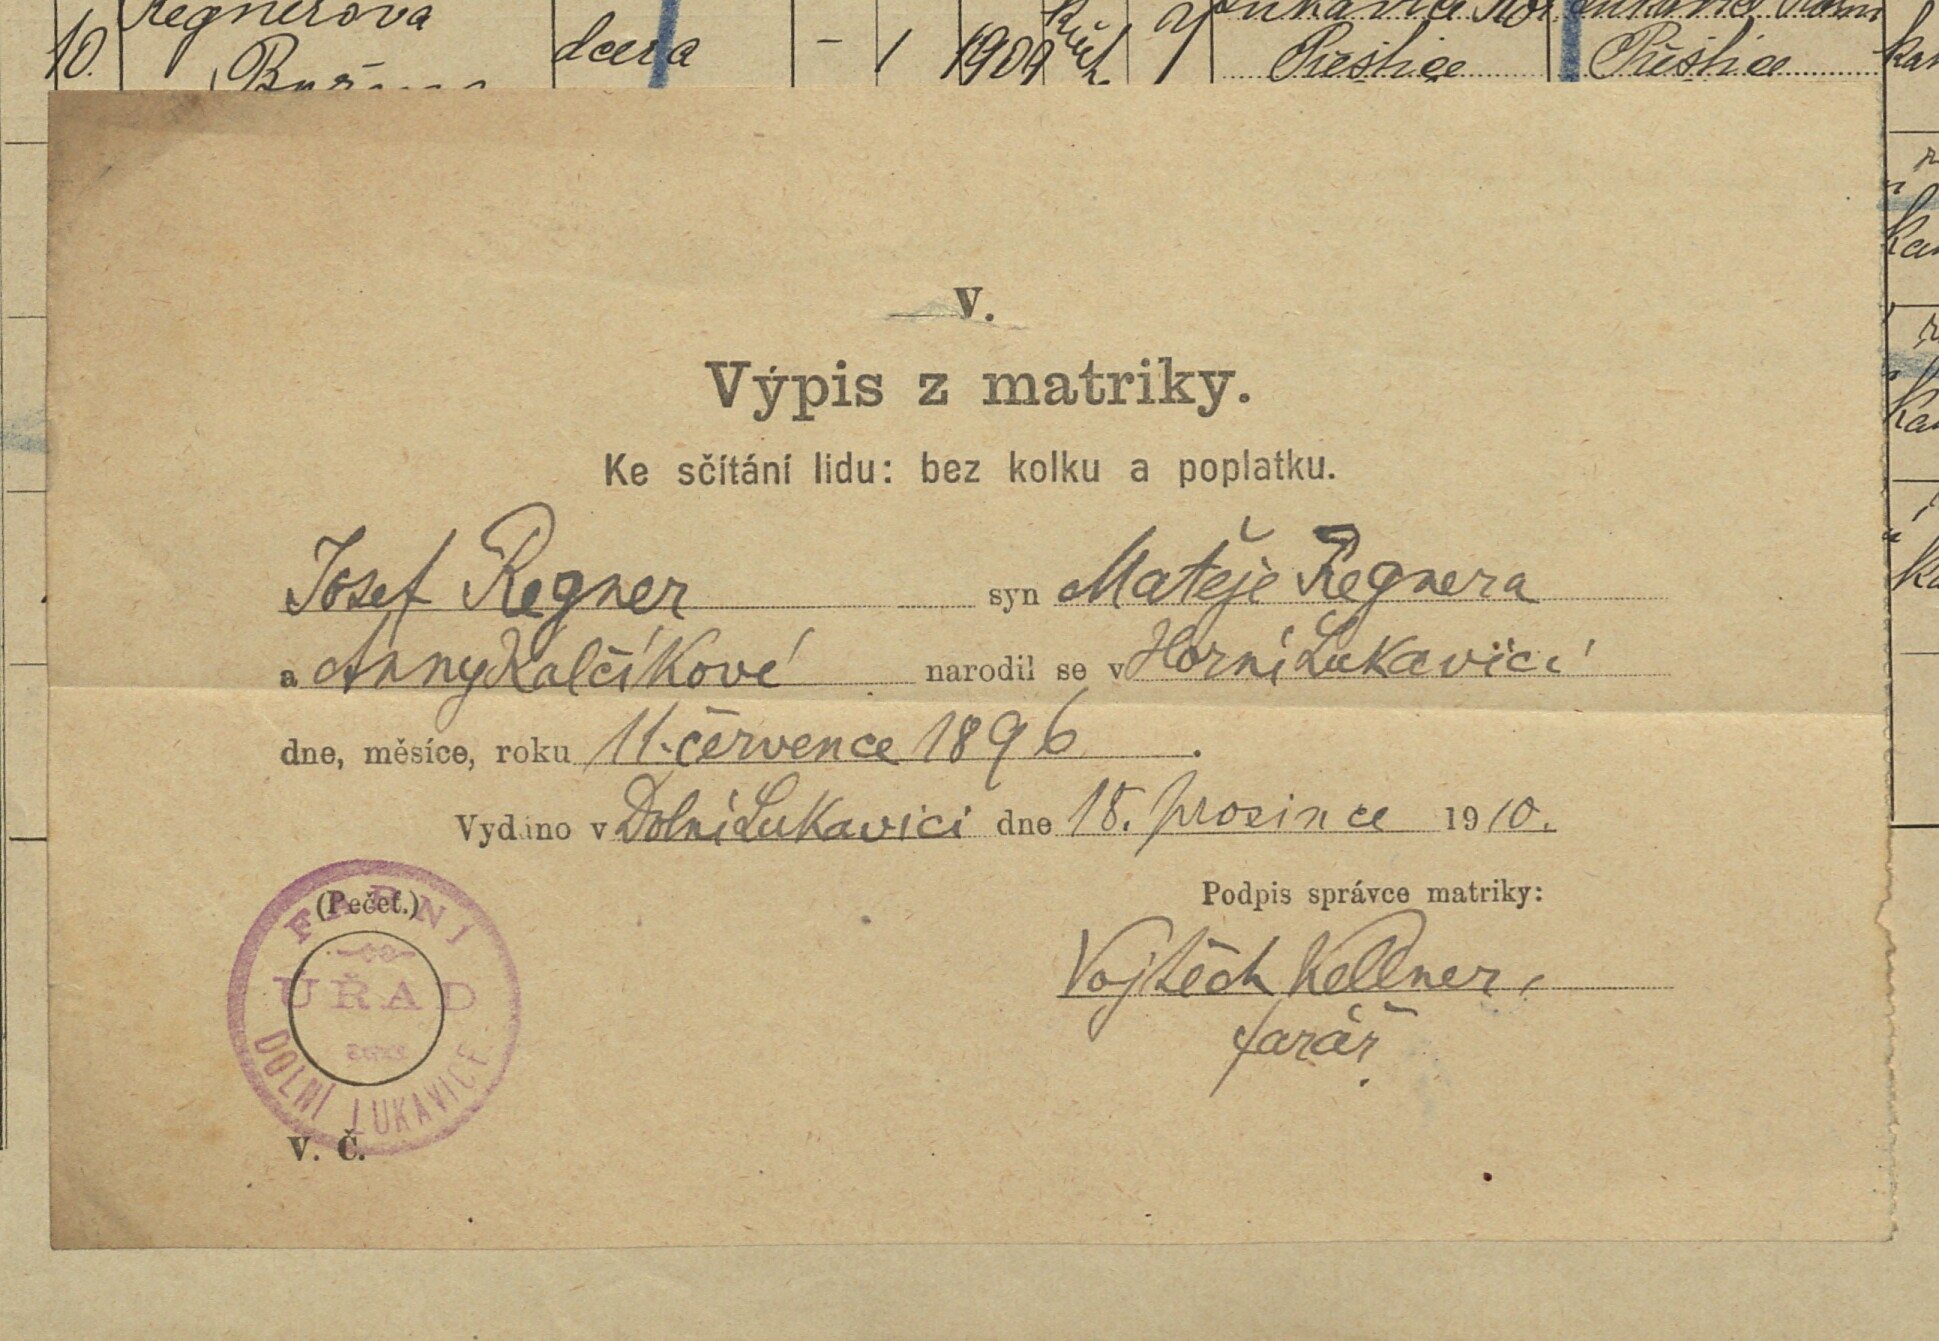 Regnerova
10. dcera – 1 1909 Přeštice Přeštice
V.
Výpis z matriky.
Ke sčítání lidu: bez kolku a poplatku.
Josef Regner syn Matěje Regnera
a Anny Kalčíkové narodil se v Horní Lukavici
dne, měsíce, roku 11. července 1896.
Vydáno v Dolní Lukavici dne 18. prosince 1910.
(Pečeť.)
FARNÍ
ÚŘAD
DOLNÍ LUKAVICE
Podpis správce matriky:
Vojtěch Kellner,
farář.
V. Č.